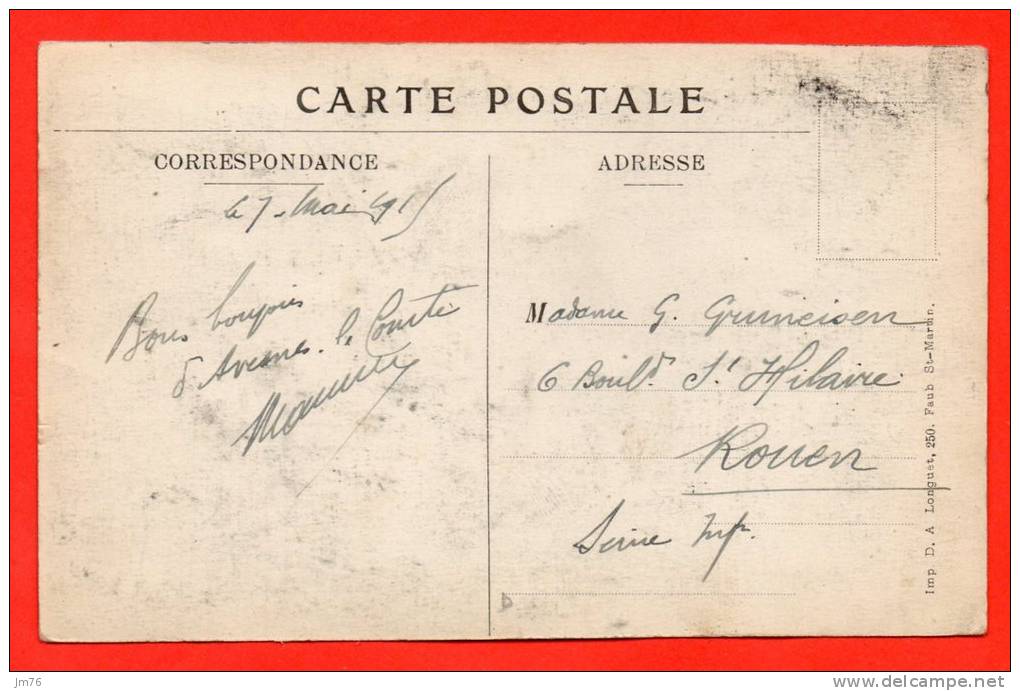 CARTE POSTALE
CORRESPONDANCE
le 7 Mai 1915
Bons
d'Avesnes le Comte
Maurice
ADRESSE
Madame G. Gruneisen
6 Boul.d St Hilaire
Rouen
Seine Infr.
Imp D. A Longuet, 250. Faub St-Martin.
jm76
www.delcampe.net